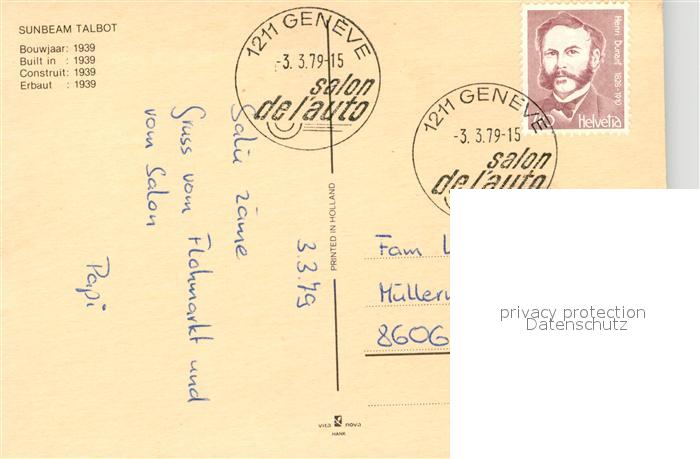 SUNBEAM TALBOT
Bouwjaar: 1939
Built in : 1939
Construit: 1939
Erbaut : 1939
1211 GENEVE
-3. 3. 79-15
salon
de l'auto
1211 GENEVE
-3. 3. 79-15
salon
de l'auto
Henri Dunant 1828-1910
Helvetia
3.3.79
Salü zäme
Gruss vom Flohmarkt und
vom Salon
Papi
PRINTED IN HOLLAND
Fam
8606
vita nova
HANK
privacy protection
Datenschutz